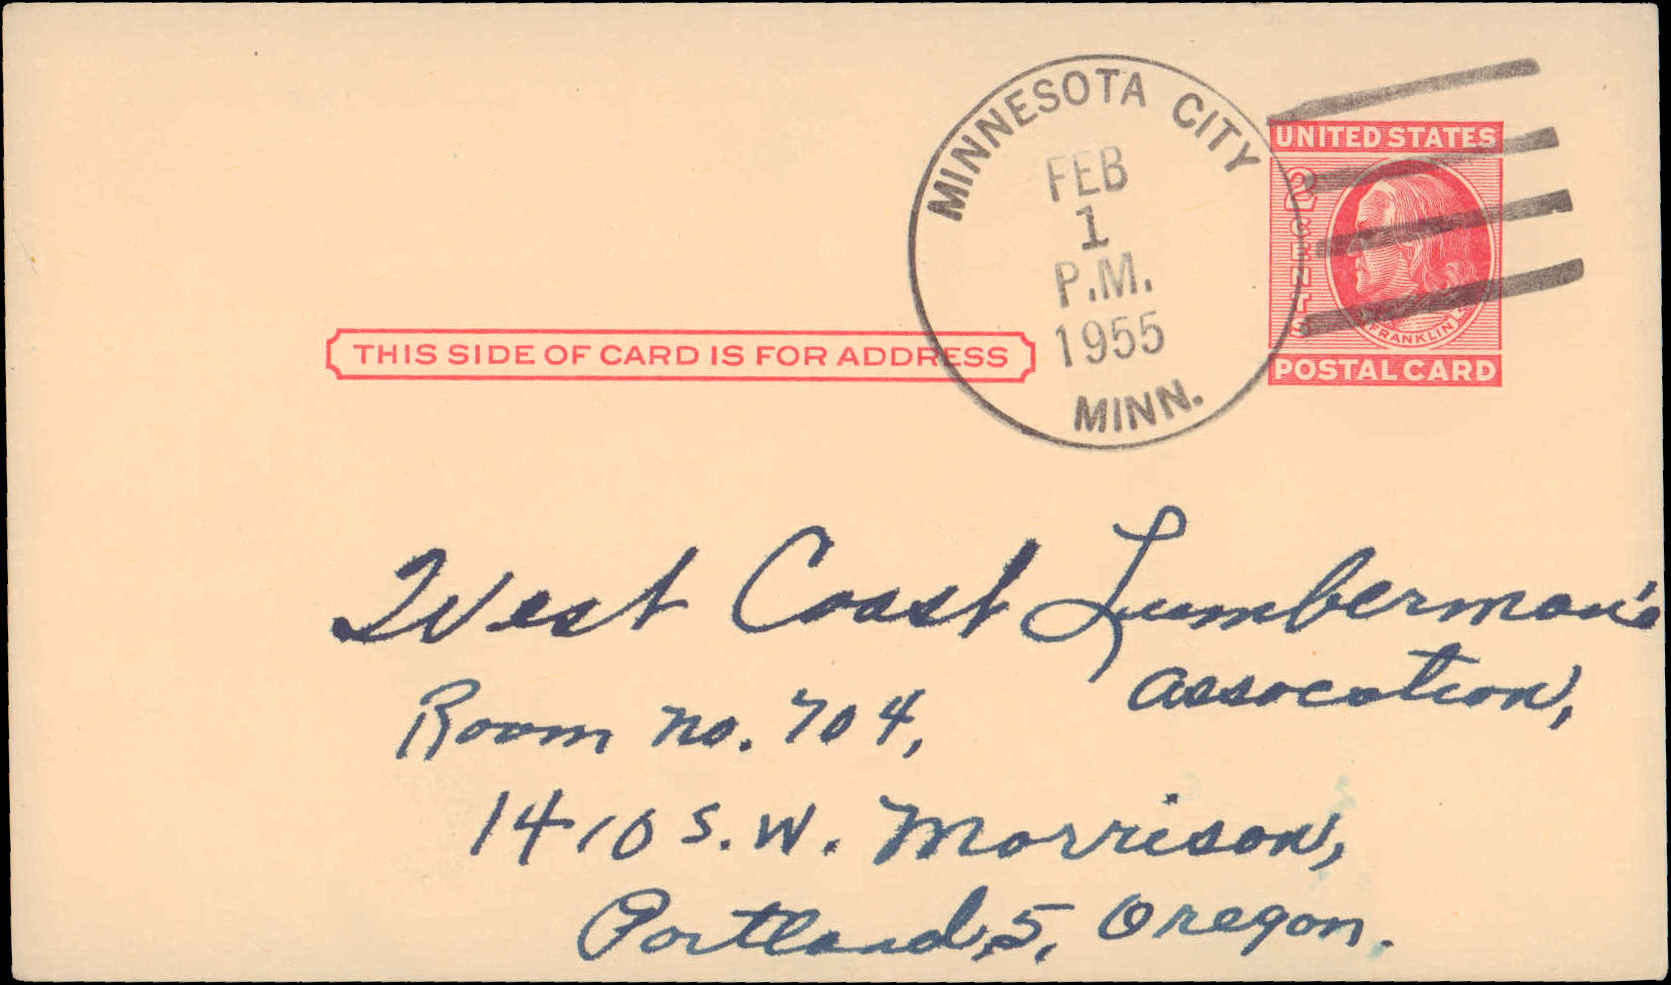 MINNESOTA CITY
FEB
1
P.M.
1955
MINN.
UNITED STATES
2 CENTS
FRANKLIN
POSTAL CARD
THIS SIDE OF CARD IS FOR ADDRESS
West Coast Lumberman's
Assocation,
Room no. 704,
1410 S. W. Morrison,
Portland, 5, Oregon.